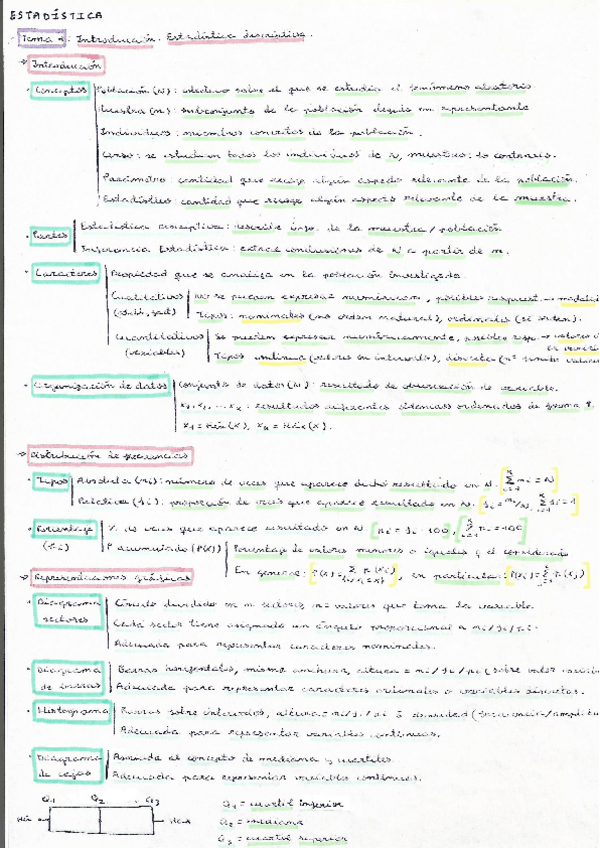 ESTADÍSTICA
Tema 1: Introducción. Estadística descriptiva.
→ Introducción
· Conceptos Población (N): colectivo sobre el que se estudia el fenómeno aleatorio.
Muestra (n): subconjunto de la población elegido representante
Individuos: miembros concretos de la población.
Censo: se estudian todos los individuos de N, muestreo: lo contrario.
Parámetro: cantidad que recoge algún aspecto relevante de la población.
Estadístico: cantidad que recoge algún aspecto relevante de la muestra.
· Partes Estadística descriptiva: describe info. de la muestra/población
Inferencia Estadística: extrae conclusiones de N a partir de n.
· Caracteres Propiedad que se analiza en la población investigada.
Cualitativos no se pueden expresar numéricam., posibles respuest. →
Tipos: nominales (no orden natural), ordinales (sí orden).
Cuantitativos Se pueden expresar numéricamente, posibles resp. → valores
(variables)
Tipos continua (valores en intervalo), discreta (nº
· Organización de datos Conjunto de datos (N): resultado de observación de variable.
x₁, x₂, ... xₖ: resultados diferentes ordenados de forma
x₁ = Mín(X), xₖ = Máx(X).
→ Distribución de frecuencias
· Tipos Absoluta (nᵢ): número de veces que aparece dicho resultado en N.
Relativa (fᵢ): proporción de veces que aparece resultado en N.
· Porcentaje % de veces que aparece resultado en N pᵢ = fᵢ · 100
(pᵢ) P acumulado (P(X)) Porcentaje de valores menores o iguales al considerado
En general: en particular:
→ Representaciones gráficas
· Diagrama sectores Círculo dividido en sectores valores que toma la variable.
Cada sector tiene asignado un ángulo proporcional a nᵢ/fᵢ/pᵢ.
Adecuada para representar caracteres nominales.
· Diagrama de barras Barras horizontales, misma anchura, altura = nᵢ/fᵢ/pᵢ (sobre valor
Adecuada para representar caracteres ordinales o variables discretas.
· Histograma Barras sobre intervalos, altura = nᵢ/fᵢ/pᵢ densidad (frecuencia/amplitud
Adecuada para representar variables continuas.
· Diagrama de cajas Asociada al concepto de mediana y cuartiles.
Adecuada para representar variables continuas.
Q₁ Q₂ Q₃
Mín Máx
Q₁ = cuartil inferior
Q₂ = mediana
Q₃ = cuartil superior